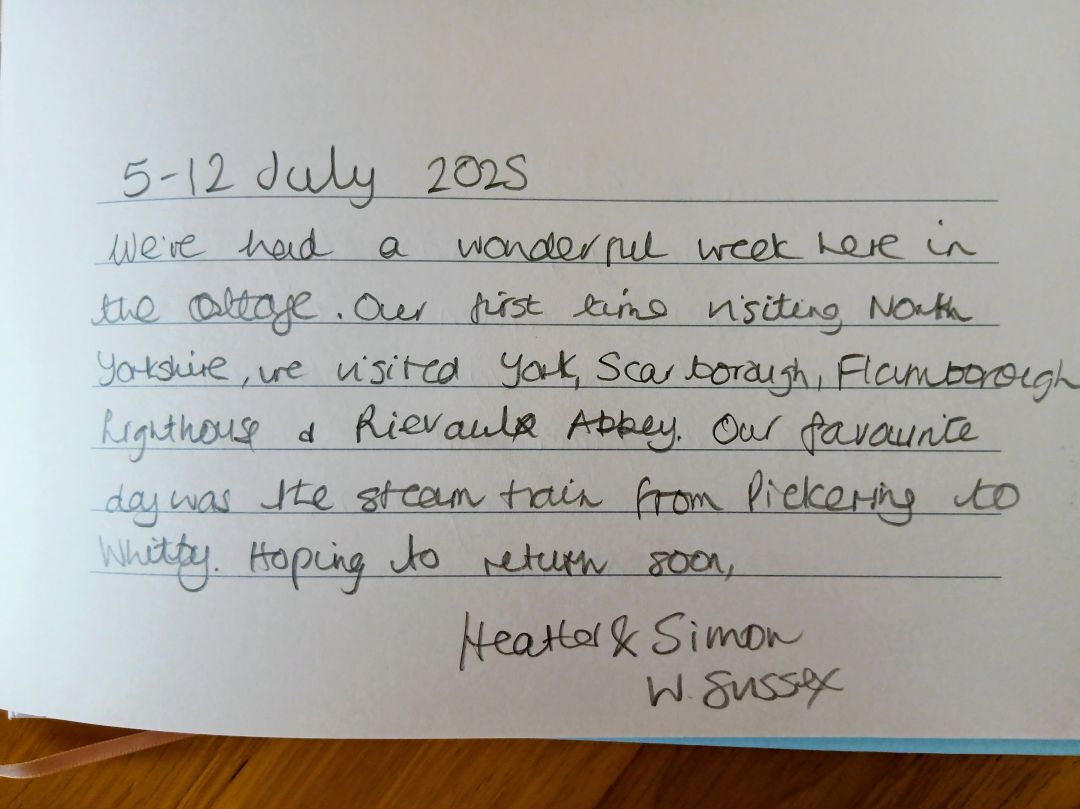 5-12 July 2025
We've had a wonderful week here in
the cottage. Our first time visiting North
Yorkshire, we visited York, Scarborough, Flamborough
Lighthouse & Rievaulx Abbey. Our favourite
day was the steam train from Pickering to
Whitby. Hoping to return soon,
Heather & Simon
W. Sussex